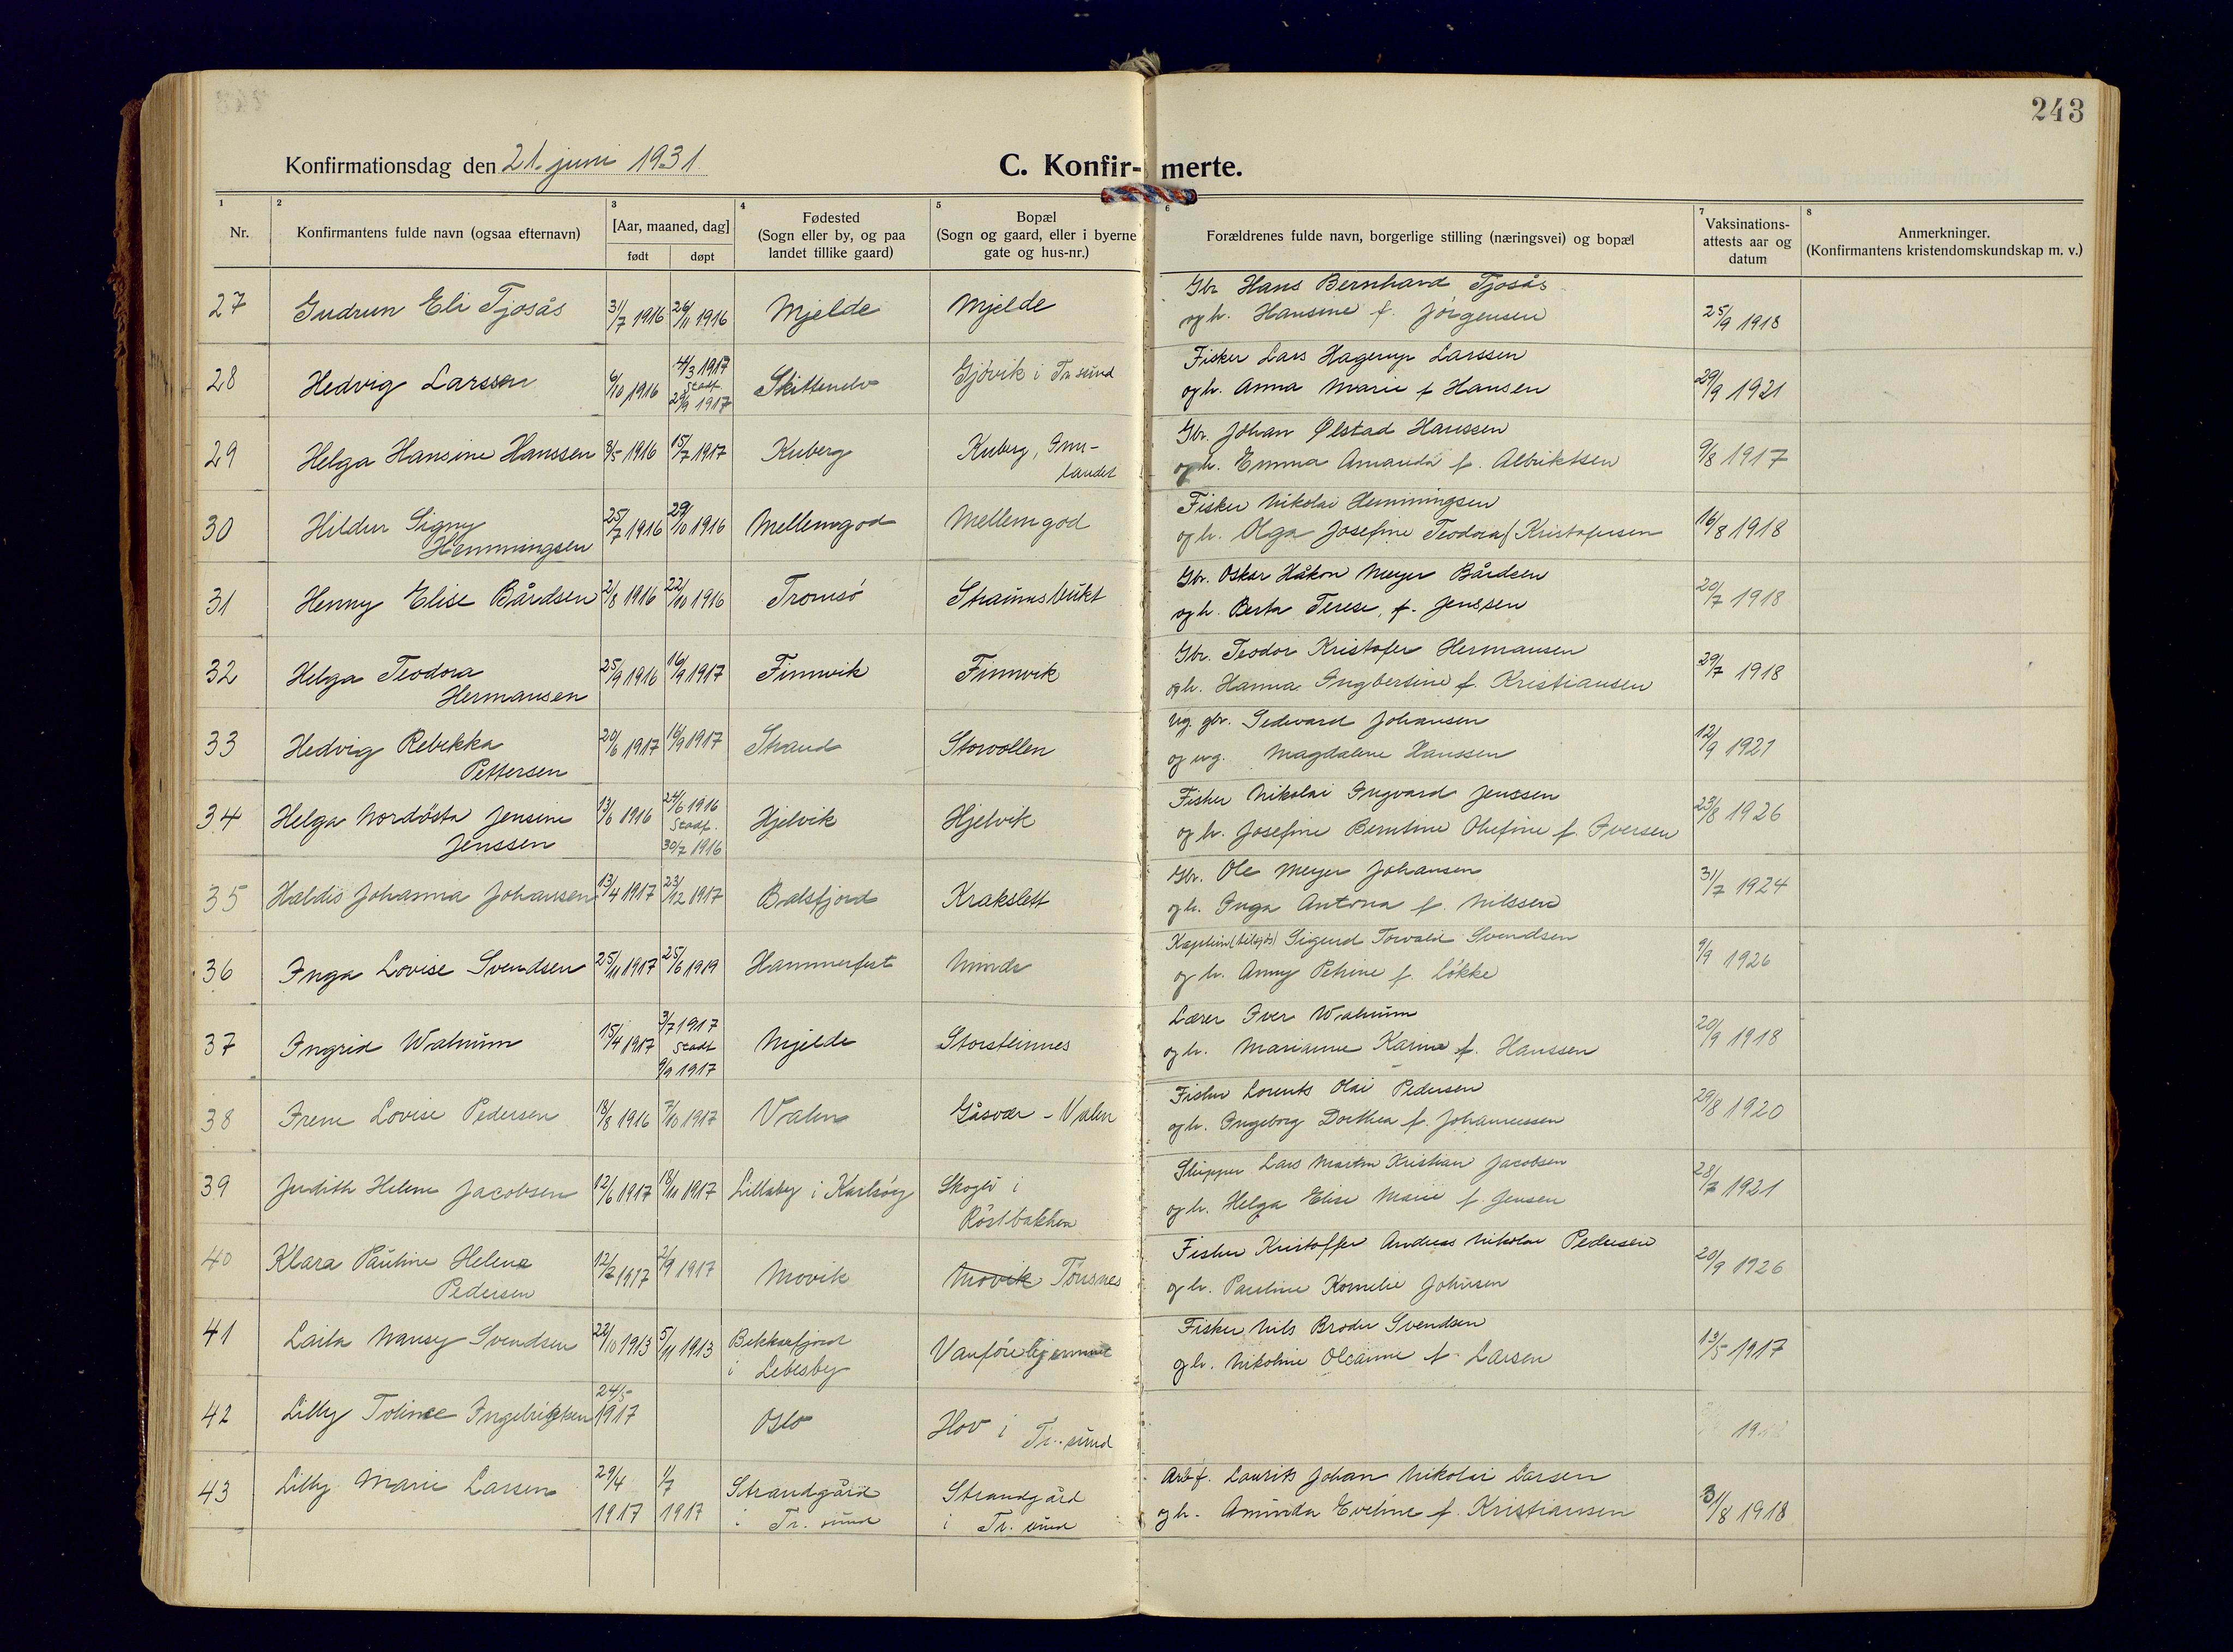 243
Konfirmationsdag den 21. juni 1931
C. Konfir- merte.
1 2 3 4 5 6 7 8
Nr.
Konfirmantens fulde navn (ogsaa efternavn)
[Aar, maaned, dag]
født døpt
Fødested
(Sogn eller by, og paa
landet tillike gaard)
Bopæl
(Sogn og gaard, eller i byerne
gate og hus-nr.)
Forældrenes fulde navn, borgerlige stilling (næringsvei) og bopæl
Vaksinations-
attests aar og
datum
Anmerkninger.
(Konfirmantens kristendomskundskap m. v.)
27 Gudrun Eli Tjosås 31/7 1916 26/11 1916 Mjelde Mjelde
Gbr Hans Bernhard Tjosås
og h. Hansine f. Jörgensen 25/9 1918
28 Hedvig Larssen 6/10 1916 4/3 1917
Stadf.
29/9 1917 Skittenelv Gjövik i Tr sund
Fisker Lars Hagerup Larssen
og h. Anna Marie f Hansen 29/9 1921
29 Helga Hansine Hanssen 9/5 1916 15/7 1917 Kuberg Kuberg,
landet
Gbr. Johan Ølstad Hanssen
og h. Emma Amanda f. Albriktsen 9/8 1917
30 Hildur Signy
Hemmingsen 25/7 1916 29/10 1916 Mellemgod Mellemgod
Fisker Nikolai Hemmingsen
og h. Olga Josefine Teodora f Kristofersen 16/8 1918
31 Henny Elise Bårdsen 2/8 1916 22/10 1916 Tromsö Straumsbukt
Gbr. Oskar Håkon Meyer Bårdsen
og h. Berta Terese, f. Jenssen 20/7 1918
32 Helga Teodora
Hermansen 25/9 1916 16/9 1917 Finnvik Finnvik
Gbr. Teodor Kristofer Hermansen
og h. Hanna Ingbertine f. Kristiansen 29/7 1918
33 Hedvig Rebekka
Pettersen 20/6 1917 16/9 1917 Strand Storvollen
Ug. gbr. Sedevard Johansen
og ug. Magdalene Hanssen 12/9 1921
34 Helga Nordösta Jensine
Jenssen 13/6 1916 24/6 1916
Stadf.
30/7 1916 Hjelvik Hjelvik
Fisker Nikolai Ingvard Jenssen
og h. Josefine Berntine Olufine f. Iversen 23/8 1926
35 Haldis Johanna Johansen 13/4 1917 23/12 1917 Balsfjord Krakslett
Gbr. Ole Meyer Johansen
og h. Inga Antona f. Nilssen 31/7 1924
36 Inga Lovise Svendsen 25/11 1917 25/6 1919 Hammerfest Minde
Sigurd Torvald Svendsen
og h. Anny Petrine f. Lökke 9/9 1926
37 Ingrid Walnum 15/4 1917 3/7 1917
Stadf
9/9 1917 Mjelde Storsteinnes
Lærer Iver Walnum
og h. Marianne Karine f. Hanssen 20/9 1918
38 Irene Lovise Pedersen 18/8 1916 7/10 1917 Valen Gåsvær - Valen
Fisker Lorents Olai Pedersen
og h. Ingeborg Dorthea f. Johannessen 29/8 1920
39 Judith Helene Jacobsen 12/6 1917 18/11 1917 Lillaby i Karlsöy Skogli i
Röstbakken
Skipper Lars Martin Kristian Jacobsen
og h. Helga Elise Marie f. Jensen 28/7 1921
40 Klara Pauline Helene
Pedersen 12/7 1917 2/9 1917 Movik Movik Tønsnes
Fisker Kristoffer Andreas Nikolai Pedersen
og h. Pauline Kornelie Johnsen 20/9 1926
41 Laila Nansy Svendsen 22/10 1913 5/11 1913 Bekkarfjord
i Lebesby Vanförehjemmet
Fisker Nils Broder Svendsen
og h. Nikoline Oleanne f. Larsen 13/5 1917
42 Lilly Toline Ingebrigtsen 24/5
1917 Oslo Hov i
Tr. sund
43 Lilly Marie Larsen 29/4
1917 1/7
1917 Strandgård
i Tr. sund Strandgård
i Tr. sund
Arb f. Laurits Johan Nikolai Larsen
og h. Aminda Eveline f. Kristiansen 31/8 1918